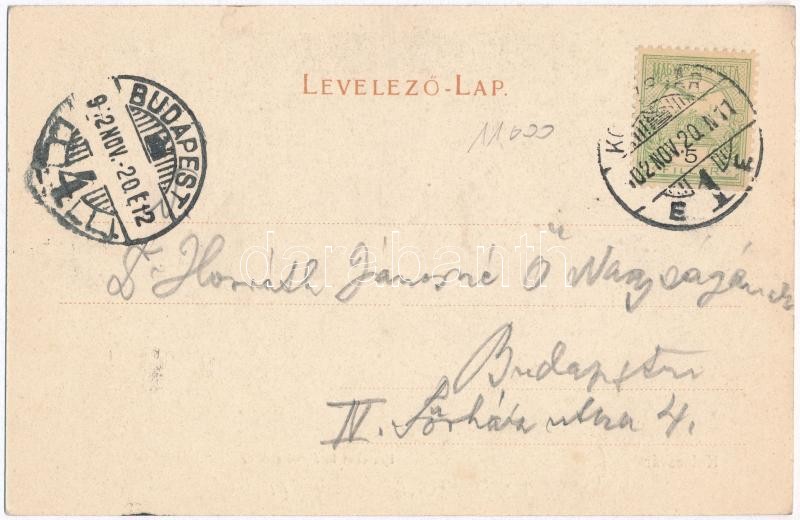 LEVELEZŐ-LAP.
MAGYAR POSTA
5
902 NOV. 20. N 11
E 1 F
BUDAPEST
902 NOV. 20. E 12
4
11000
darabanth
Dr Horváth Jánosné Ő Nagyságának
Budapesten
IV. Sörház utca 4.